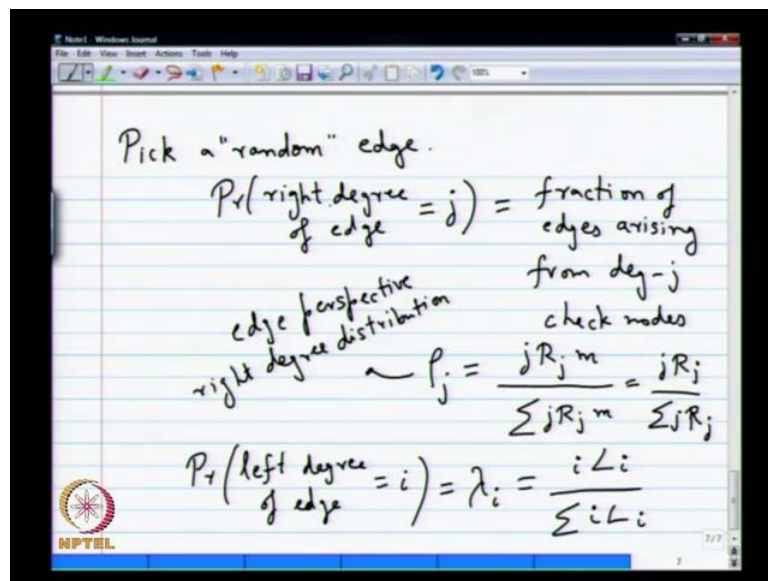 Note1 - Windows Journal
File Edit View Insert Actions Tools Help
100%
Pick a "random" edge.
Pr(right degree of edge = j) = fraction of
edges arising
from deg-j
check nodes
edge perspective
right degree distribution
ρ_j = jR_j m / Σ jR_j m = jR_j / Σ jR_j
Pr(left degree of edge = i) = λ_i = iL_i / Σ iL_i
NPTEL
7/7
7